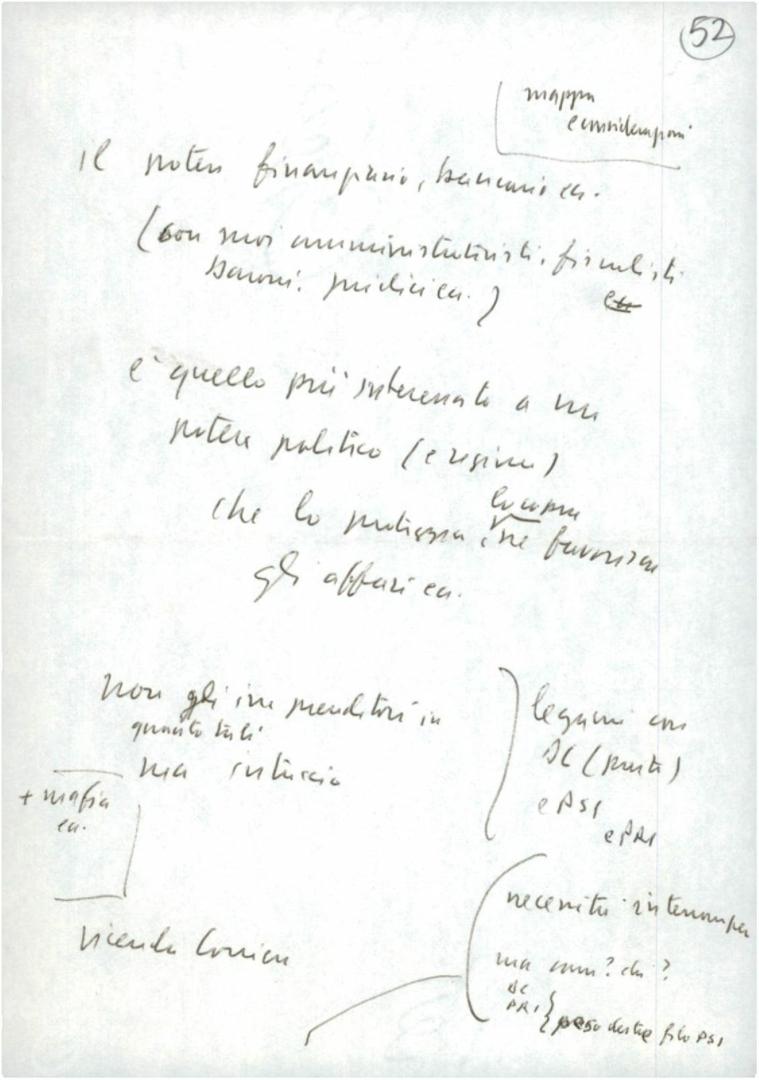 52
mappa
considerazioni
il potere finanziario, bancario ecc.
(con suoi amministrativisti, fiscalisti
baroni, giudici ecc.)
è quello più interessato a un
potere politico (e regime)
che lo protegga, ne favorisca
gli affari ecc.
non gli imprenditori in
quanto tali
ma intreccio
+ mafia
ecc.
legami con
DC (parte)
e PSI
e PRI
vicenda Corriere
necessità interrompere
ma come? chi?
DC
PRI
peso destre filo PSI